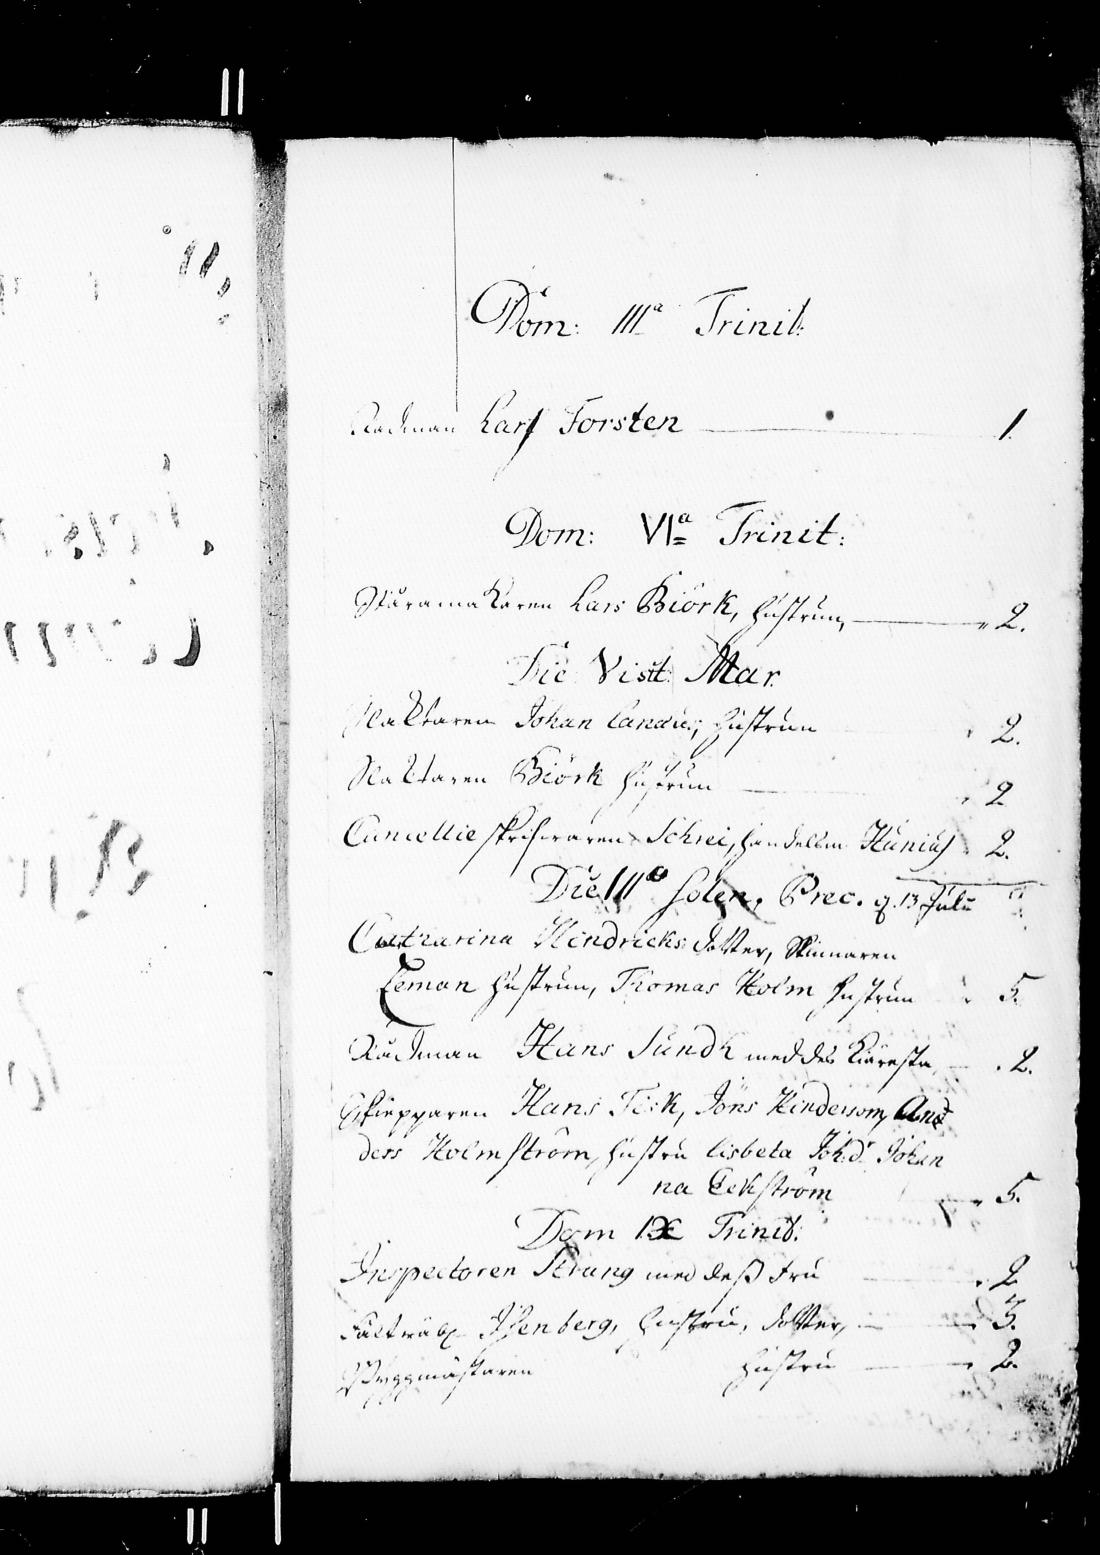 Dom: IIIa Trinit:
Rådman Larß Forsten 1.
Dom: VIa Trinit:
Lars Biörk, hustrun, 2.
Die Visit: Mar.
Slaktaren Johan Candus, hustrun 2.
Slaktaren Biörk hustrun 2
Cancellie skrifwaren Schrei, handelßm Hunius 2.
Die IIIa Solen. Prec. 13 Julii
Catharina Hindricksdotter, Skinnaren
Leman hustrun, Thomas Holm hustrun 5.
Rådman Hans Sundh med des kiäresta 2.
Skiepparen Hans Fisk, Jöns Hinderson, And
ders Holmström, hustru Lisbeta Joh:d: Johan
na Eckström 5.
Dom IX Trinit:
Inspectoren Strang med deß Fru 2
Isenberg, hustru, dotter, 3.
Byggmästaren hustru 2.